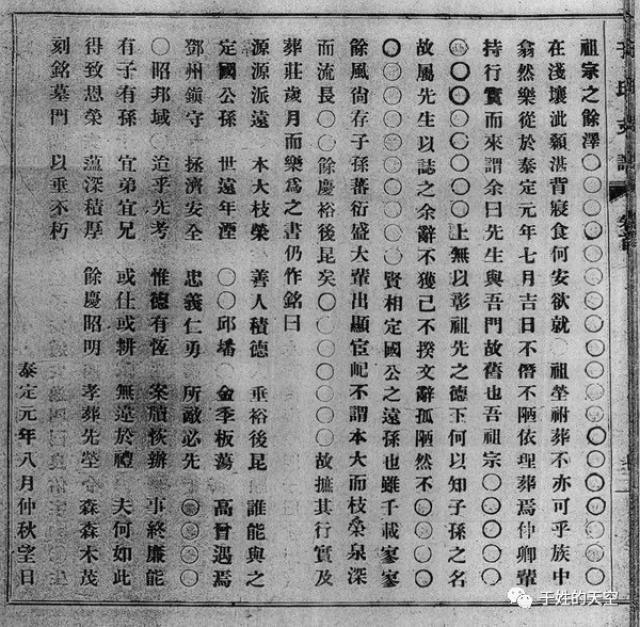 祖宗之餘澤〇〇〇〇〇〇〇〇〇〇〇〇〇〇〇〇〇〇〇
在淺壤泚顙湛背寢食何安欲就〇祖塋祔葬不亦可乎族中
翕然樂從於泰定元年七月吉日不僭不陋依理葬焉仲卿輩
持行實而來謂余曰先生與吾門故舊也吾祖宗〇〇〇〇〇
〇〇〇〇〇〇〇〇上無以彰祖先之德下何以知子孫之名
故屬先生以誌之余辭不獲已不揆文辭孤陋然不〇〇〇〇
〇〇〇〇〇〇〇〇〇〇賢相定國公之遠孫也雖千載家家
餘風尙存子孫蕃衍盛大輩出顯宦屺不謂本大而枝榮泉深
而流長〇〇餘慶裕後昆矣〇〇〇〇〇〇〇故摭其行實及
葬莊歲月而樂爲之書仍作銘曰
源源派遠 木大枝榮 善人積德 垂裕後昆 誰能與之
定國公孫 世遠年湮 〇〇邱墦 金季板蕩 高曾遇焉
鄧州鎭守 拯濟安全 忠義仁勇 所敵必先 〇〇〇〇
〇昭邦域 迨乎先考 惟德有恆 案牘恢辦 事終廉能
有子有孫 宜弟宜兄 或仕或耕 無違於禮 夫何如此
得致恩榮 蘊深積厚 餘慶昭明 孝葬先塋 森森木茂
刻銘墓門 以垂不朽
泰定元年八月仲秋望日
于姓的天空